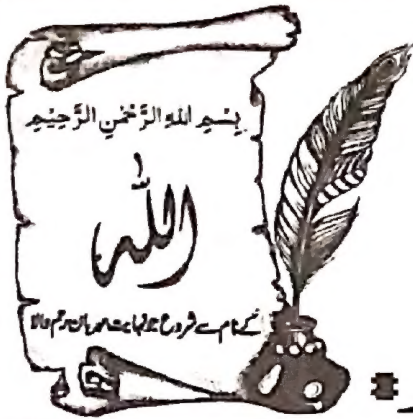 بِسْمِ اللهِ الرَّحْمٰنِ الرَّحِيْمِ
اللہ
کے نام سے شروع جو نہایت مہربان رحم والا